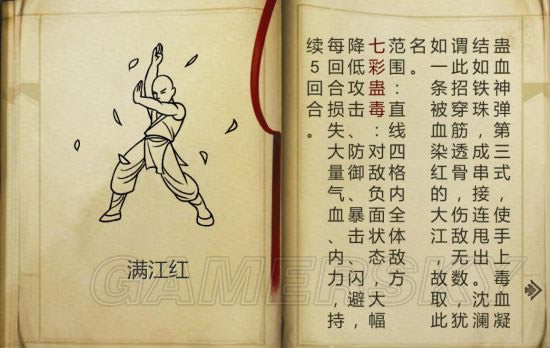 满江红
蛊血神弹第三式,使手上毒血凝
结如铁珠,成串接连甩出。沈澜
谓此招穿筋透骨,伤敌无数,犹
如一条被血染红的大江,故取此
名。
范围:直线四格内全体敌方
七彩蛊毒:对负面状态,大幅
降低攻击、防御、暴击、闪避,
每回合损失大量气血、内力,持
续5回合。
GAMERSKY